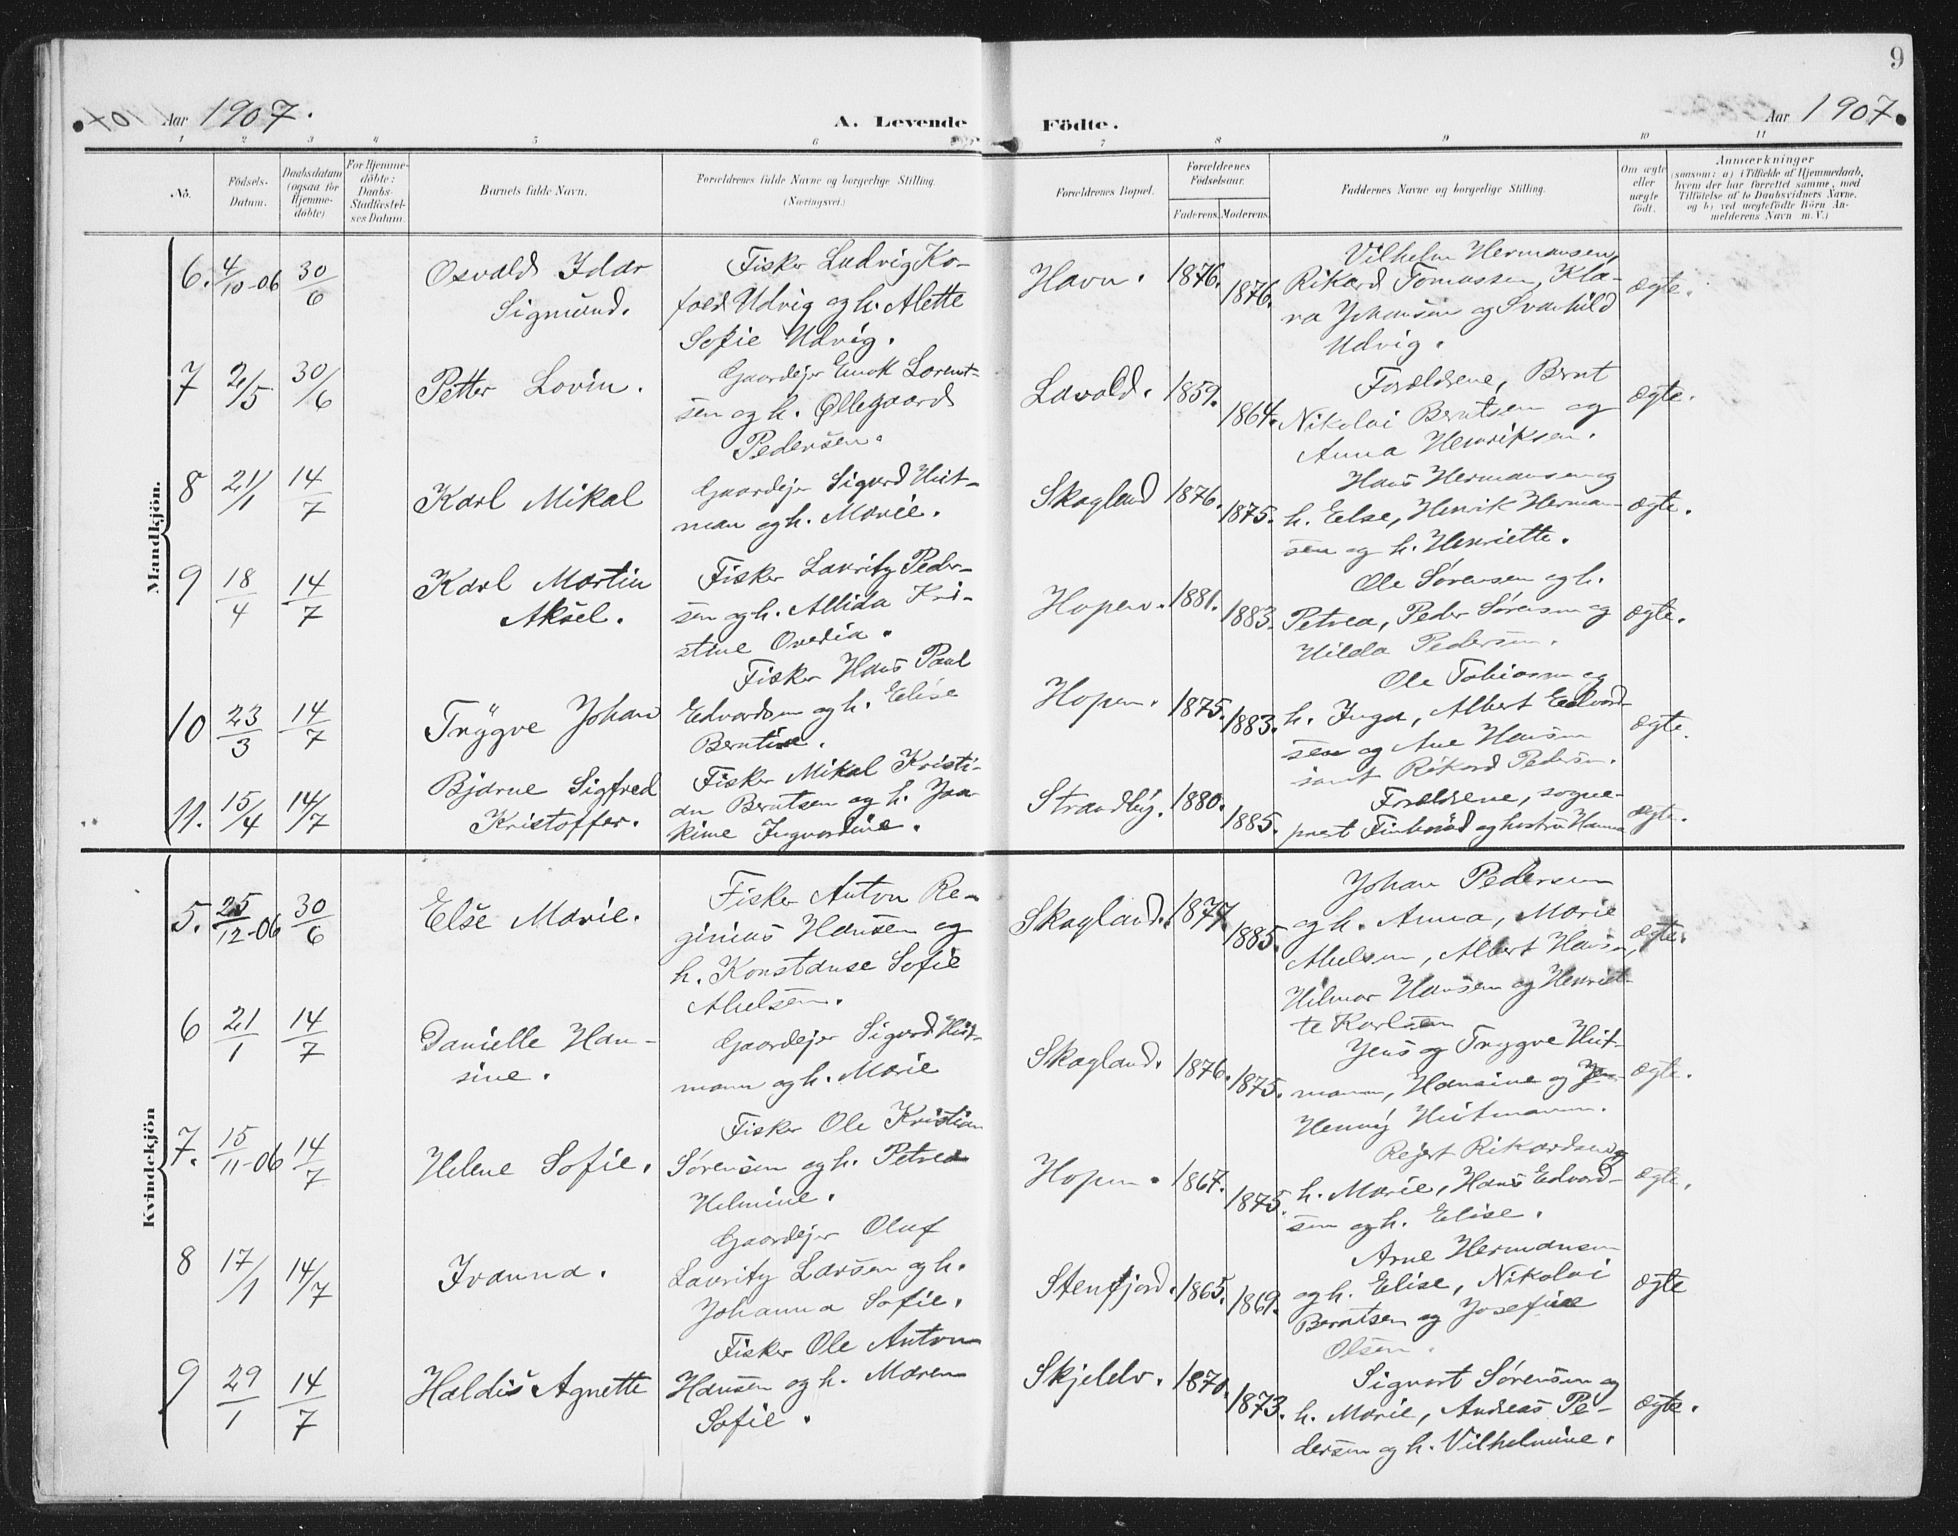 9
Aar 1907.
A. Levende
Födte.
Aar 1907.
1 2 3 4 5 6 7 8 9 10 11
No.
Födsels-
Datum.
Daabsdatum
(ogsaa for
Hjemme-
döbte)
For Hjemme-
döbte:
Daabs-
Stadfæstel-
ses Datum.
Barnets fulde Navn.
Forældrenes fulde Navne og borgerlige Stilling.
(Næringsvei.)
Forældrenes Bopæl.
Forældrenes
Födselsaar.
Faderens. Moderens.
Faddernes Navne og borgerlige Stilling.
Om ægte
eller
uægte
födt.
Anmærkninger
(saasom: a) i Tilfælde af Hjemmedaab,
hvem der har forrettet samme, med
Tilföielse af to Daabsvidners Navne,
og b) ved uægtefödte Börn An-
melderens Navn m. V.)
Mandkjön.
6. 4/10-06 30/6
Osvald Idar
Sigmund.
Fisker Ludvig Ko-
foed Udvig og h. Alette
Sofie Udvig.
Havn. 1876. 1876.
Vilhelm Hermansen,
Rikard Tomassen, Kla-
ra Johansen og Svanhild
Udvig.
ægte.
7 2/5 30/6
Petter Lovin.
Gaardejer Enok Lorent-
sen og h. Øllegaard
Pedersen.
Lavold. 1859. 1864.
Forældrene, Bernt
Nikolai Berntsen og
Anna Henriksen.
ægte.
8 21/1 14/7
Karl Mikal
Gaardejer Sigurd Hut-
man og h. Marie.
Skagland 1876. 1875.
Hans Hermansen og
h. Else, Henrik Herman-
sen og h. Henriette.
ægte.
9 18/4 14/7
Karl Martin
Aksel.
Fisker Lauritz Peder-
sen og h. Allida Kri-
stine Ovedia.
Hopen. 1881. 1883.
Ole Sørensen og h.
Petrea, Peder Sørensen og
Hilda Pedersen.
ægte.
10 23/3 14/7
Trygve Johan
Fisker Hans Paul
Edvardsen og h. Elise
Berntine.
Hopen. 1875. 1883.
Ole Tobiassen og
h. Inga, Albert Edvard-
sen og Ane Hansen
samt Rikard Pedersen.
ægte.
11. 15/4 14/7
Bjarne Sigfred
Kristoffer.
Fisker Mikal Kristi-
an Berntsen og h. Joa-
kime Ingvardine.
Strandby. 1880. 1885.
Forældrene, sogne-
prest og hustru Hanna
ægte.
Kvindekjön
5. 25/12-06 30/6
Else Marie.
Fisker Anton Re-
ginius Hansen og
h. Konstanse Sofie
Skagland. 1877. 1885.
Johan Pedersen
og h. Anna, Marie
Albert Hansen,
Hilmar Hansen og Henriet-
te Karlsen
ægte.
6 21/1 14/7
Danielle Han-
sine.
Gaardejer Sigurd Hut-
mann og h. Marie
Skagland. 1876. 1875.
Jens og Trygve Hut-
mann, Hansine og
Henny Hutmann.
ægte.
7. 15/11-06 14/7
Helene Sofie.
Fisker Ole Kristian
Sørensen og h. Petrea
Helmine.
Hopen. 1867. 1875.
Rikardsen og
h. Marie, Hans Edvard-
sen og h. Elise.
ægte.
8 17/1 14/7
Ivanna.
Gaardejer Oluf
Lauritz Larsen og h.
Johanna Sofie.
Stenfjord. 1865. 1869.
Arne Hermansen
og h. Elise, Nikolai
Berntsen og Josefine
Olsen.
ægte
9 29/1 14/7
Haldis Agnette
Fisker Ole Anton
Hansen og h. Maren
Sofie.
Skjelelv. 1870. 1873.
Sigvart Sørensen og
h. Marie, Andreas Pe-
dersen og h. Vilhelmine.
ægte.